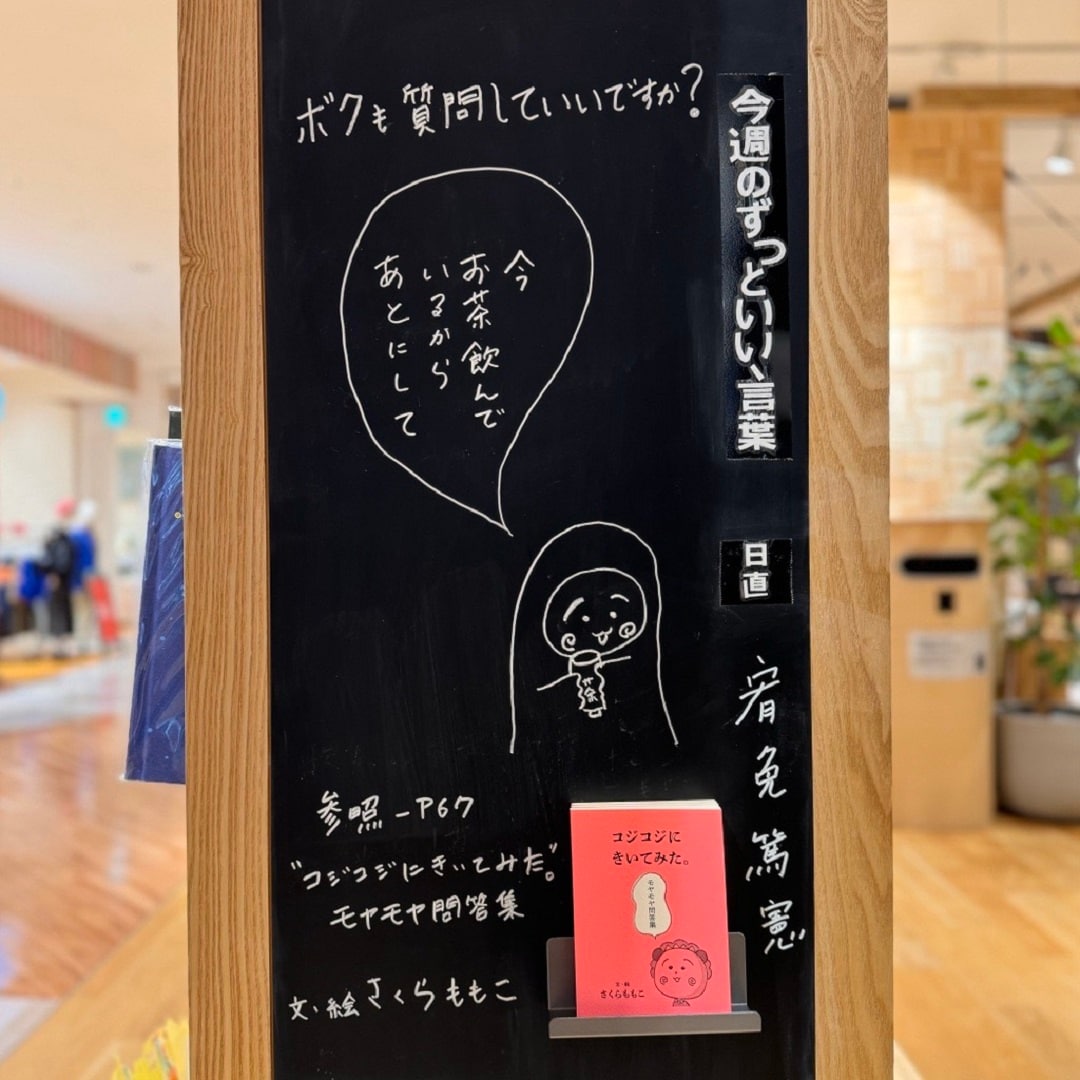 今週のずっといい言葉
日直
宥免篤憲
ボクも質問していいですか?
今
お茶飲んで
いるから
あとにして
茶
参照-P67
"コジコジにきいてみた。"
モヤモヤ問答集
文・絵 さくらももこ
コジコジに
きいてみた。
モヤモヤ問答集
文・絵
さくらももこ